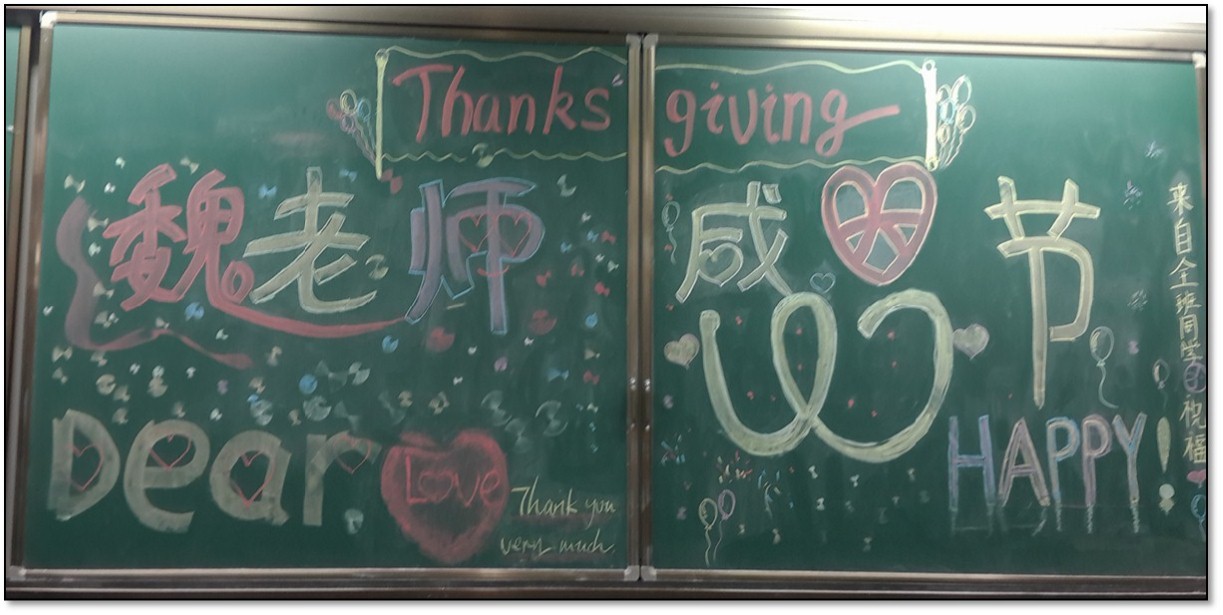 Thanks giving
魏老师
感恩节
Dear
Love
Thank you
very much.
HAPPY!
来自全班同学的祝福